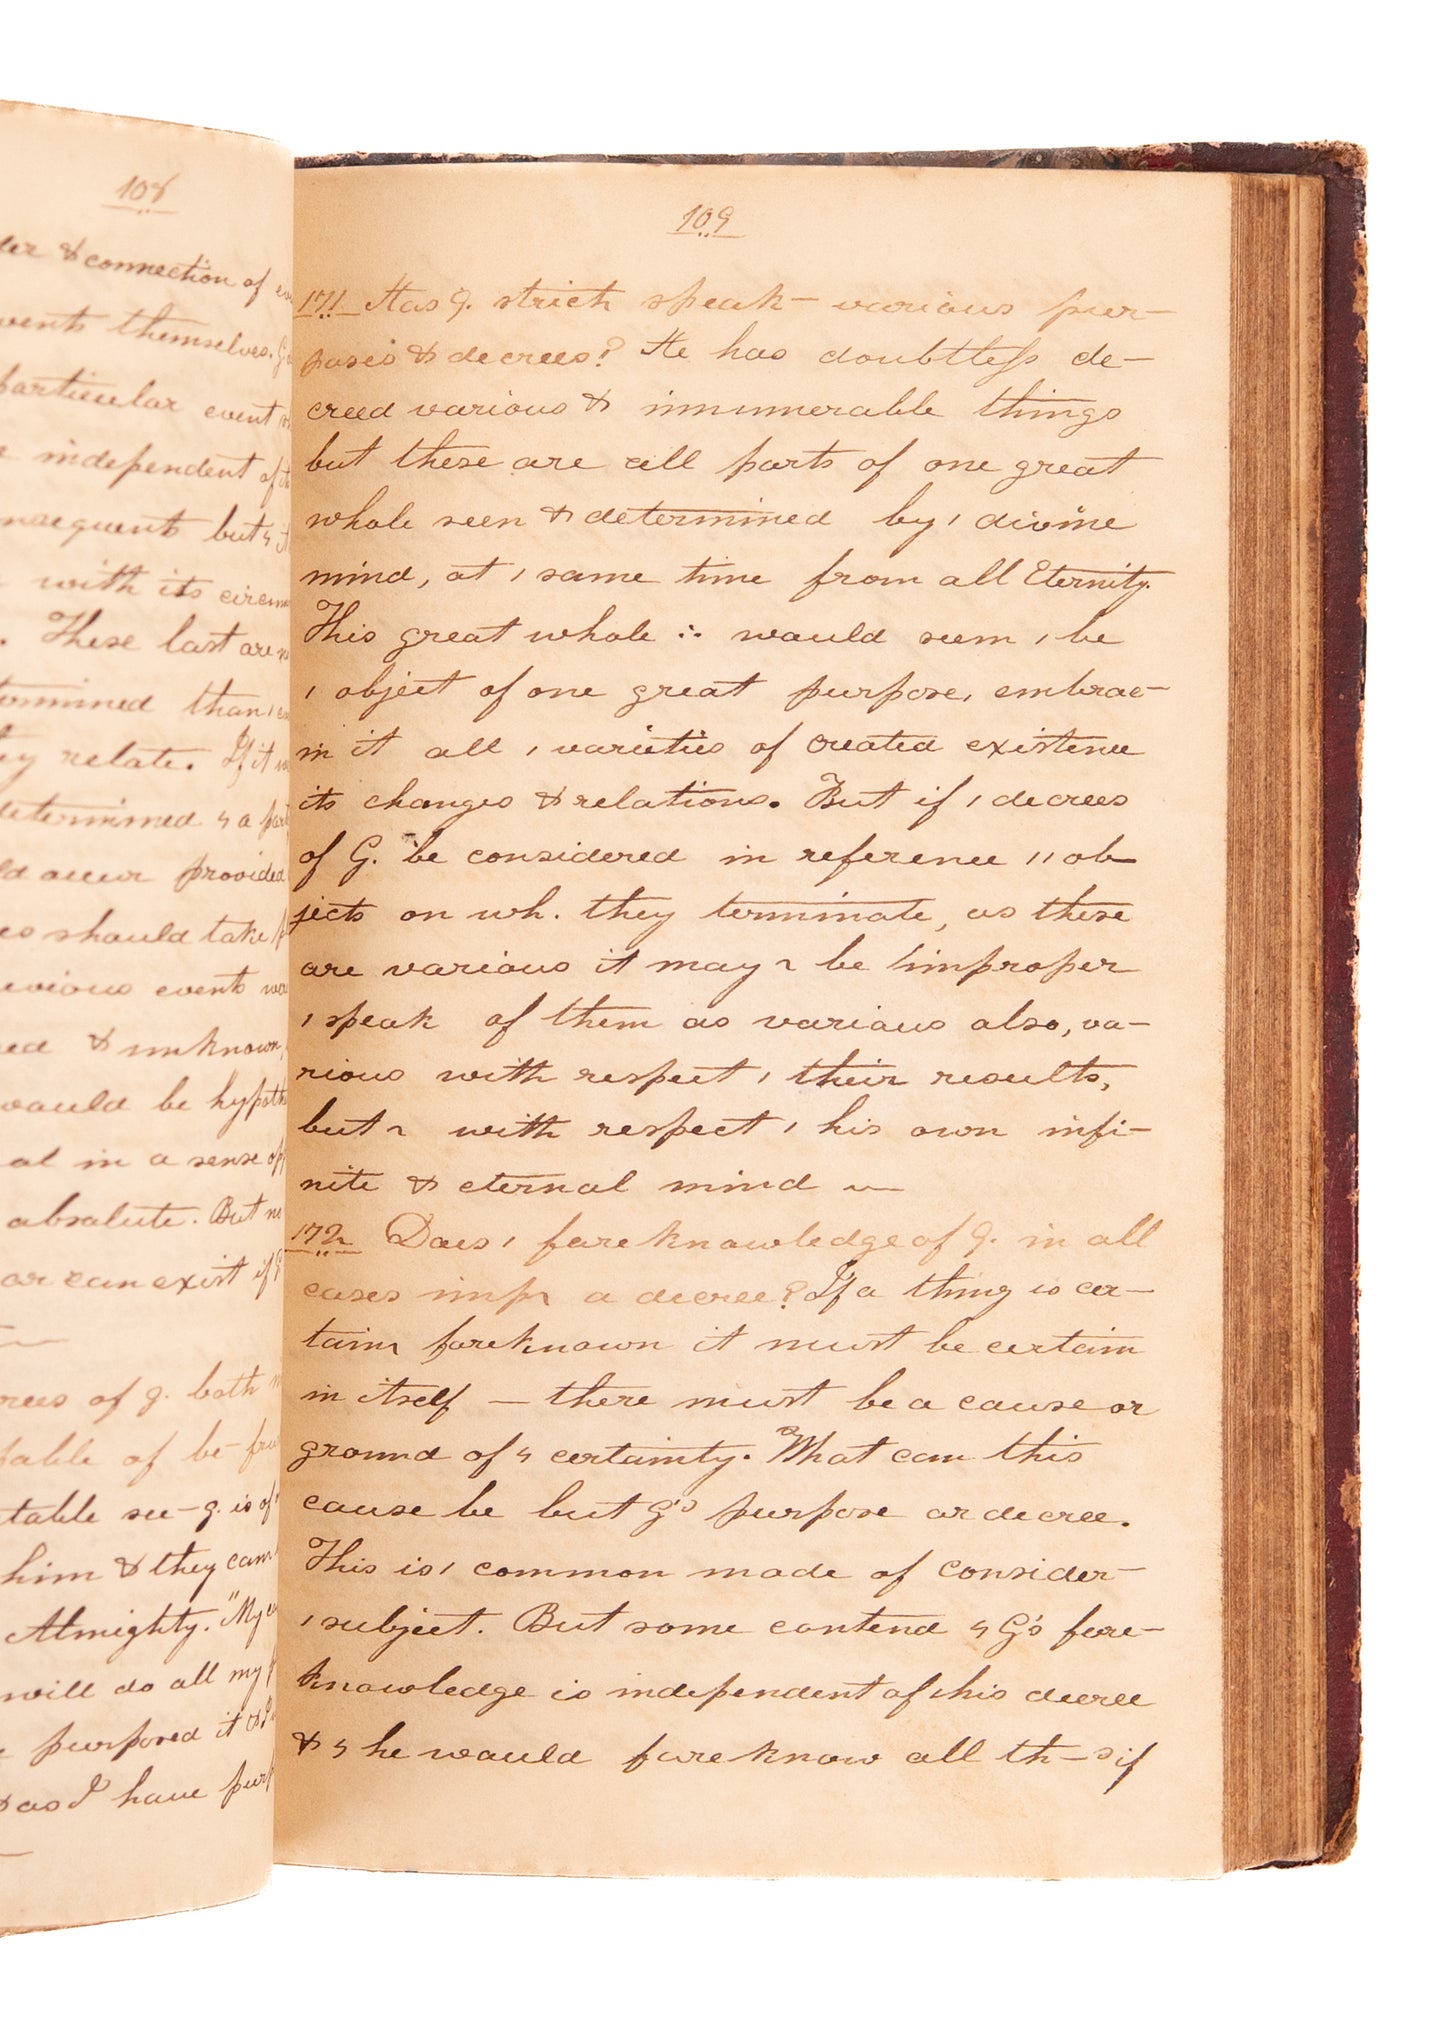 108
& connection of
vents themselves.
particular event
independent of
nsequent but ૧
with its circum
. These last are
ermined than ,
ey relate. If it
determined ૧ a part
ld occur provided
es should take
evious events
ed & unknown,
would be hypoth
al in a sense op
absolute. But
or can exist if
rees of g. both
table of be- frus
table see- g. is of
him & they can
Almighty. "My
will do all my
purposed it & I
& as I have purp
109
171 Has G. strict speak- various pur-
poses & decrees? He has doubtless de-
creed various & innumerable things
but these are all parts of one great
whole seen & determined by , divine
mind, at , same time from all Eternity.
This great whole ∴ would seem , be
, object of one great purpose, embrac-
in it all , varieties of created existence
its changes & relations. But if , decrees
of G. be considered in reference , , ob-
jects on wh. they terminate, as these
are various it may ~ be improper
, speak of them as various also, va-
rious with respect , their results,
but ~ with respect , his own infi-
nite & eternal mind ~
172 Does , foreknowledge of G. in all
cases imp~ a decree? If a thing is cer-
tain~ foreknown it must be certain
in itself — there must be a cause or
ground of ૧ certainty. What can this
cause be but G's purpose or decree.
This is , common mode of consider-
, subject. But some contend ૧ G's fore-
knowledge is independent of his decree
& ૧ he would foreknow all th-s if